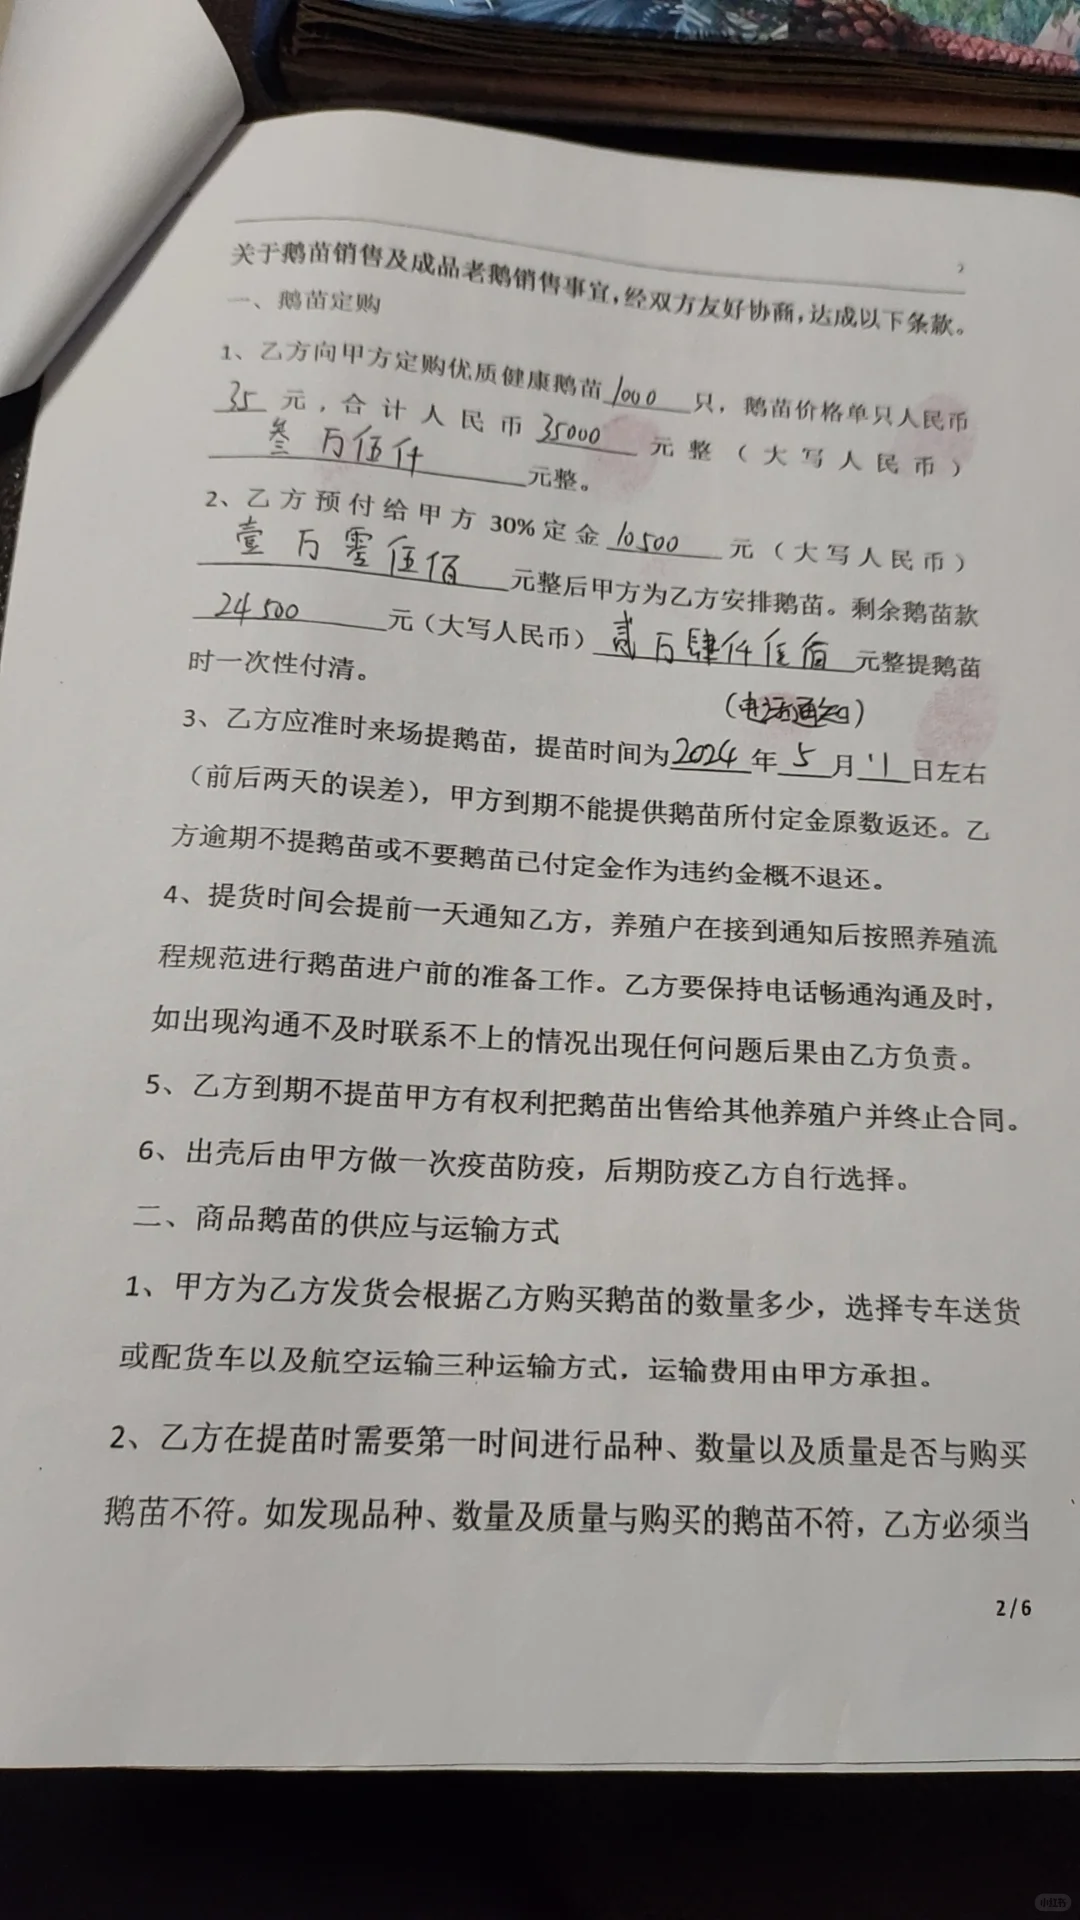 关于鹅苗销售及成品老鹅销售事宜,经双方友好协商,达成以下条款。
一、鹅苗定购
1、乙方向甲方定购优质健康鹅苗1000只，鹅苗价格单只人民币
35元，合计人民币35000元整（大写人民币）
叁万伍仟元整。
2、乙方预付给甲方30%定金10500元（大写人民币）
壹万零伍佰元整后甲方为乙方安排鹅苗。剩余鹅苗款
24500元（大写人民币）贰万肆仟伍佰元整提鹅苗
时一次性付清。
（电话通知）
3、乙方应准时来场提鹅苗，提苗时间为2024年5月日左右
（前后两天的误差），甲方到期不能提供鹅苗所付定金原数返还。乙
方逾期不提鹅苗或不要鹅苗已付定金作为违约金概不退还。
4、提货时间会提前一天通知乙方，养殖户在接到通知后按照养殖流
程规范进行鹅苗进户前的准备工作。乙方要保持电话畅通沟通及时，
如出现沟通不及时联系不上的情况出现任何问题后果由乙方负责。
5、乙方到期不提苗甲方有权利把鹅苗出售给其他养殖户并终止合同。
6、出壳后由甲方做一次疫苗防疫，后期防疫乙方自行选择。
二、商品鹅苗的供应与运输方式
1、甲方为乙方发货会根据乙方购买鹅苗的数量多少，选择专车送货
或配货车以及航空运输三种运输方式，运输费用由甲方承担。
2、乙方在提苗时需要第一时间进行品种、数量以及质量是否与购买
鹅苗不符。如发现品种、数量及质量与购买的鹅苗不符，乙方必须当
2/6
小红书